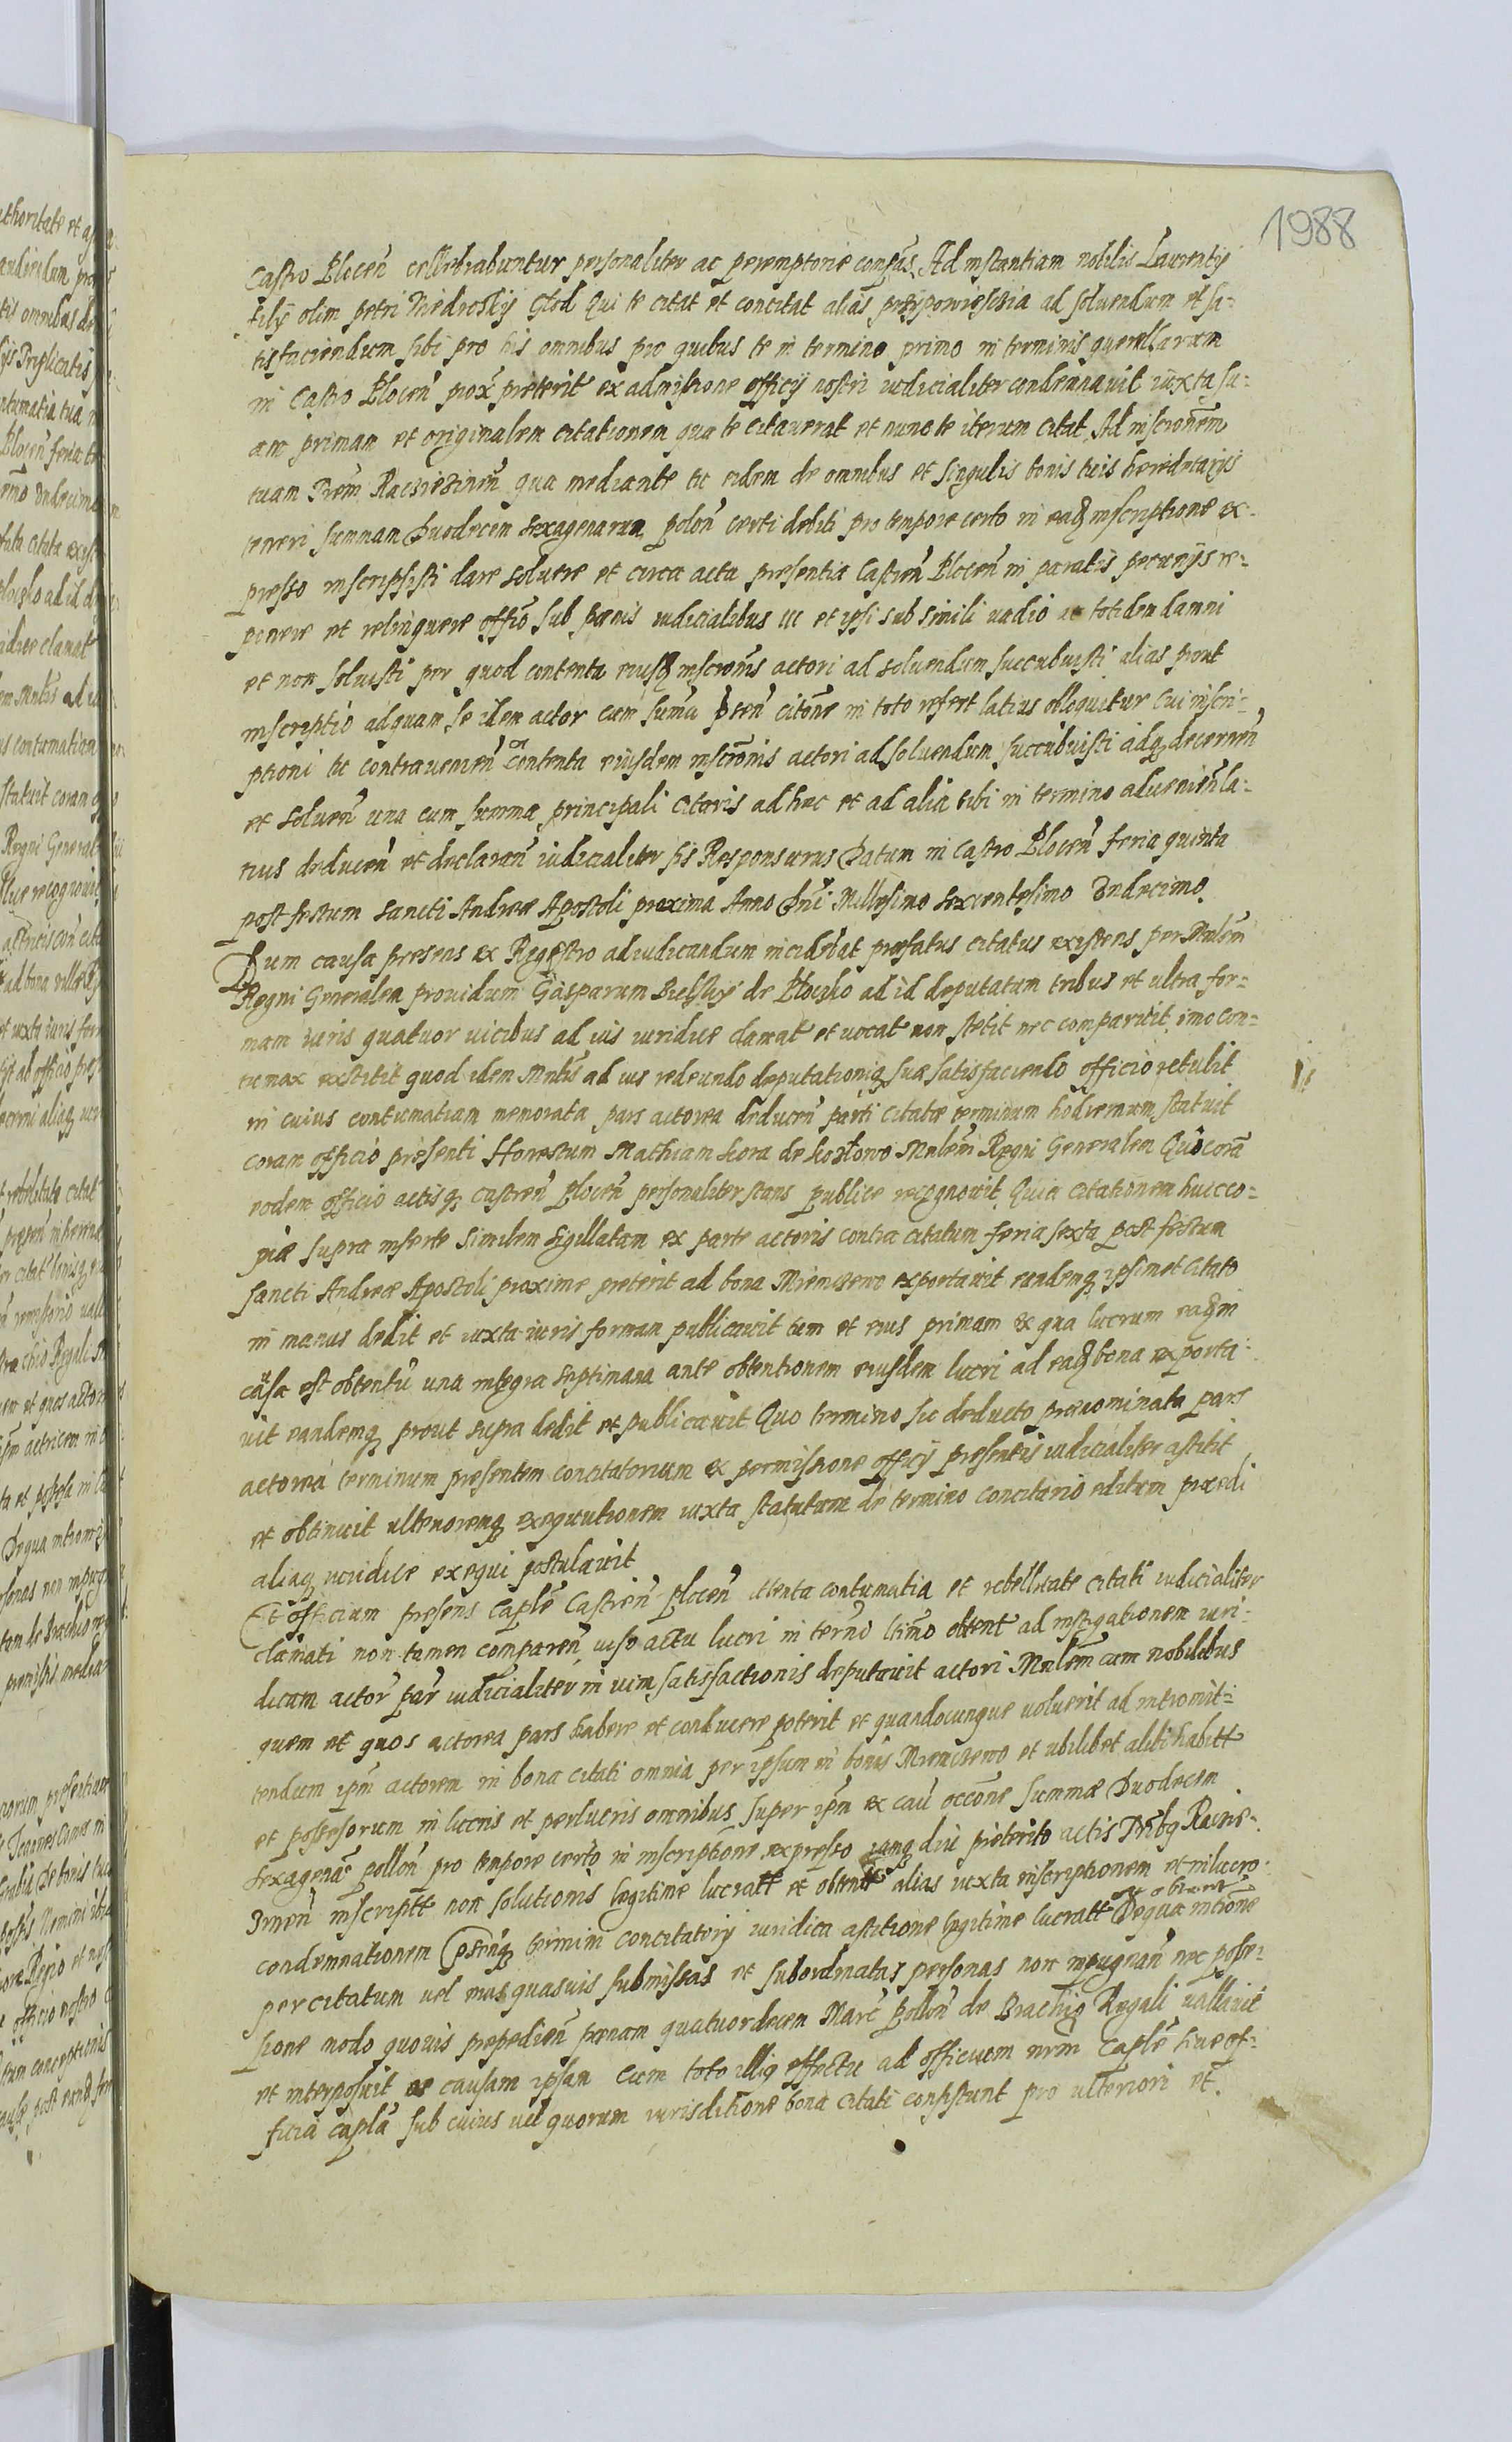 1988
Castro Plocen̄ cellebrabuntur personaliter ac peremptorie compās Ad instantiam nobilis Laurentij
filij olim petri Niedroskij Glod Qui te citat et concitat alias przypowiescia ad soluendum et sa-
tisfaciendum sibi pro his omnibus pro quibus te in termino primo in terminis querellarum
in Castro Plocen̄ prox̄ preterit ex admissione officij nostri iudicialiter condemnauit iuxta su-
am primam et originalem citationem qua te citauerat et nunc te iterum citat Ad inscrionem
tuam Trem̄ Raciezinen̄ qua mediante tu eidem de omnibus et singulis bonis tuis hereditarijs
teneri summam Duodecem sexagenarum polon̄ certi debiti pro tempore certo in eadq inscriptione ex-
presso inscripsisti dare soluere et circa acta presentia Castren̄ Plocen̄ in paratis pecunijs re-
ponere et relinquere offīo sub pœnis iudicialibus iii et ipsi sub simili uadio totiden damni
et non soluisti per quod contenta eiusq inscrionis actori ad soluendum succubuisti alias prout
inscriptio ad quam se idem actor cum suma pñen̄ citōne in toto refert latius olloquitur Cui inscri-
ptioni tu contraueniēn contenta eiusdem inscrionis actori ad soluendum succubuisti adq decernen̄
et soluen̄ una cum summa principali citaris ad hæc et ad alia tibi in termino aduenien̄ la-
tius deducen̄ et declaran̄ iudicialiter sis Responsurus Datum in Castro Plocen̄ feria quinta
post festum sancti Andreæ Apostoli proxima Anno Dnī Millesimo sexcentesimo Undecimo
Dum causa presens ex Regestro adiudicandum inciderat præfatus citatus existens per Mnlem
Regni Generalem prouidum Gasparum Bielskij de Plocko ad id deputatum tribus et ultra for-
mam iuris quatuor uicibus ad ius iuridice clamat et uocat non stetit nec comparuit imo con-
tumax extitit quod idem Mnlis ad ius redeundo deputationiq suæ satisfaciendo officio retulit
in cuius contumatiam memorata pars actorea deducen̄ parti citatæ terminum hodiernum statuit
coram officio presenti Honestum Mathiam kora de kozłowo Mnlem Regni Generalem Qui corā
eodem officio actisq castren̄ Plocen̄ personaliter stans publice recognouit Quia citationem huic co-
piæ supra inserte similem sigillatam ex parte actoris contra citatum feria sexta post festum
sancti Andreæ Apostoli proxime preterit ad bona Miemczewo exportauit eandemq ipsimet citato
in manus dedit et iuxta iuris formam publicauit tum et eius primam ex qua lucrum eadq in
causa est obtentū una integra septimana ante obtentionem eiusdem lucri ad eadq bona exporta-
uit eandemq prout supra dedit et publicauit Quo termino sic deducto prænominata pars
actorea terminum presentem concitatorium ex permissione officij presentis iudicialiter astitit
et obtinuit ulterioremq exequutionem iuxta statutum de termino concitatio editum præedi
aliaq iuridice exequi postulauit
Et officium presens Caplē Castren̄ Plocen̄ attenta contumatia et rebellitate citati iudicialiter
clamati non tamen comparen̄ uiso actu lucri in ternō ltimō obtent ad instigationem iuri-
dicam actor̄ par̄ iudicialiter in uim satisfactionis deputauit actori Mnlem cum nobilibus
quem et quos actorea pars habere et conducere poterit et quandocunque uoluerit ad intromit-
tendum ipm̄ actorem in bona citati omnia per ipsum in bonis Miemczewo et ubilibet alibi habitt
et possesorum in lucris et perlucris omnibus super ipm̄ ex cau occone summæ Duodecem
sexagenar̄ pollon̄ pro tempore certo in inscriptione expresso iamq diu preterito actis Trebq Racie-
zinen̄ inscriptt non solutionis legitime lucratt et obtentt alias iuxta inscriptionem et in lucro
condemnationem psenq termini concitatorij iuridica astitione legitime lucratt et obtent De qua intione
per citatum uel eius quasuis submissas et subordinatas personas non inpugnan̄ nec posse-
sione modo quouis prepedien̄ pœnam quatuordecem Marc̄ pollon̄ de Brachio Regali uallauit
et interposuit ac causam ipsam cum toto illiq effectu ad officium nrm̄ Caplē siue of-
ficia capla sub cuius uel quorum iurisditione bona citati consistunt pro ulteriori et